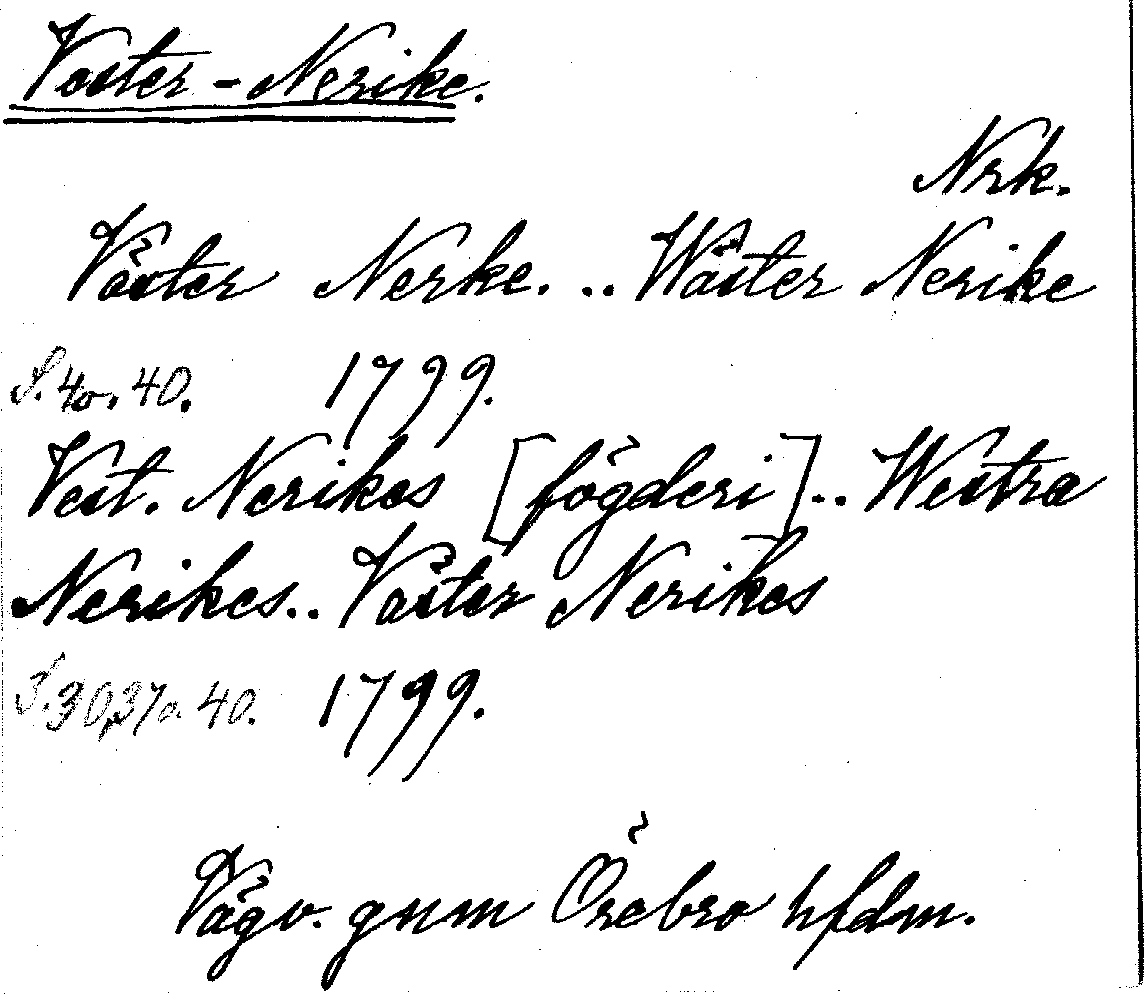 Väster-Nerike.
Nrk.
Väster Nerke. .. Wäster Nerike
S. 4o. 40. 1799.
Vest. Nerikes [fögderi].. Westra
Nerikes.. Väster Nerikes
S. 30, 37 o. 40. 1799.
Vägv. gnm Örebro hfdm.